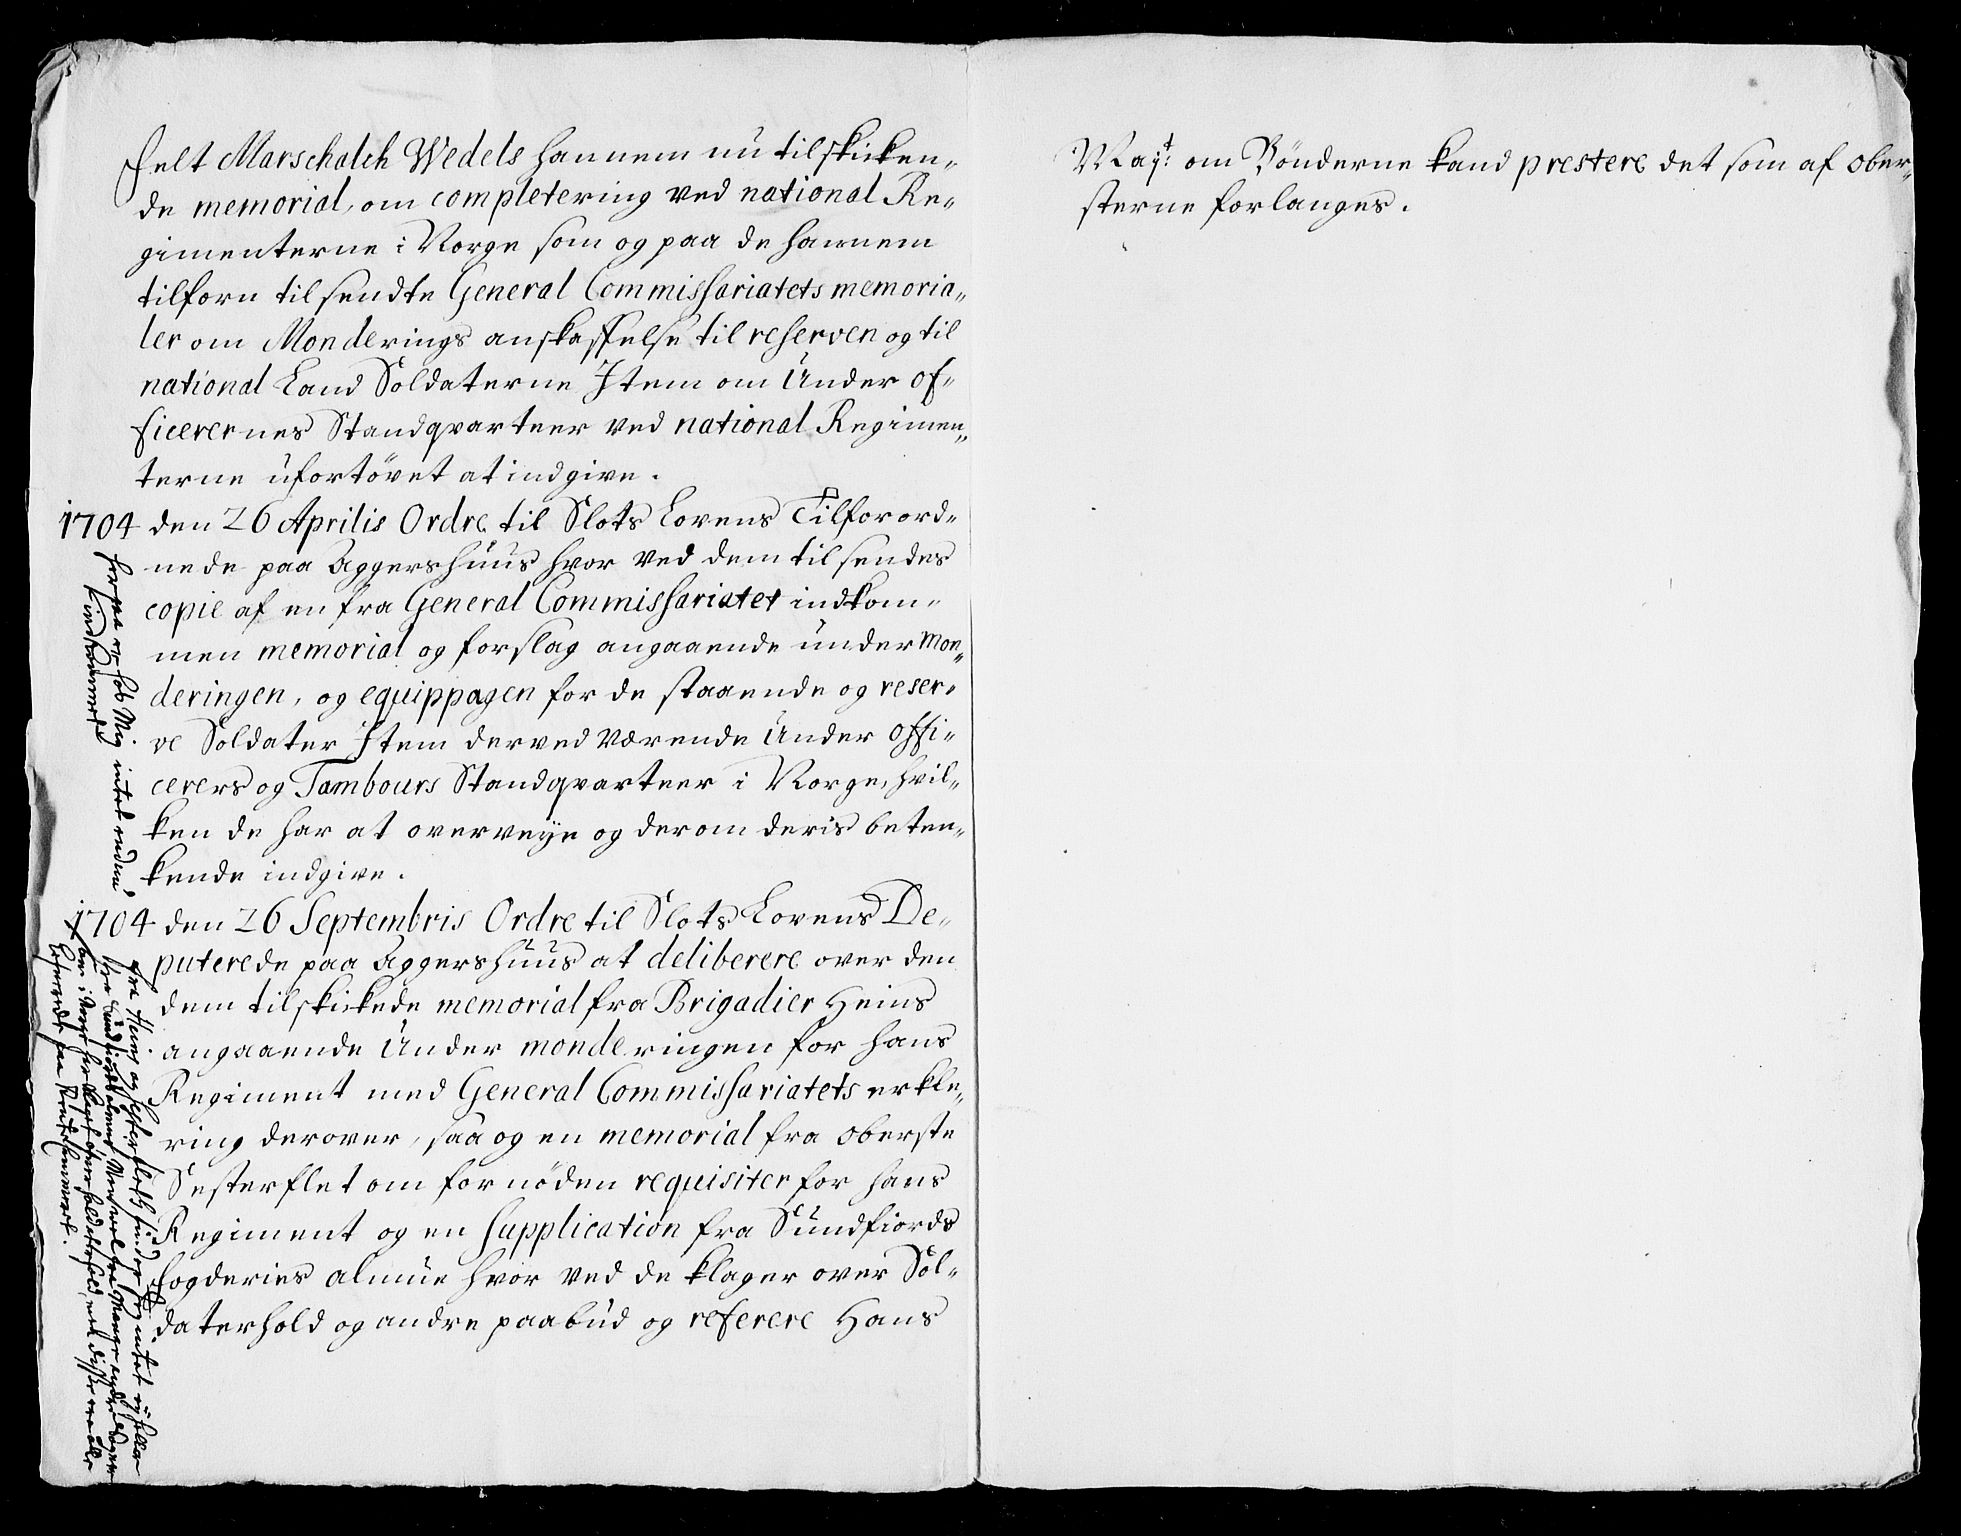 Felt Marschalch Wedels hannem nu tilskicken„
de memorial, om completering ved national Re„
gimenterne i Norge som og paa de hannem
tilforn tilsendte General Commissariatets memoria„
ler om Monderings anskaffelse til reserven og til
national Land Soldaterne Item om Under of„
ficerernes Standqvarteer ved national Regimen„
terne ufortövet at indgive.
1704 den 26 Aprilis Ordre til Slots Lovens Tilforord„
nede paa Aggershuus hvor ved dem tilsendes
copie af en fra General Commissariatet indkom„
men memorial og forslag angaaende under Mon„
deringen, og equippagen for de staaende og reser„
ve Soldater Item derved værende Under Offi„
cerers og Tambours Standqvarteer i Norge, hvil„
ken de har at overveije og derom deris beten„
kende indgive.
herpaa er hos Mig intet
1704 den 26 Septembris Ordre til Slots Lovens De„
puterede paa Aggershuus at deliberere over den
dem tilskickede memorial fra Brigadier Heins
angaaende Under monderingen for hans
Regiment med General Commissariatets erkle„
ring derover, saa og en memorial fra Oberste
Sesterflet om fornöden requisiter for hans
Regiment og en Supplication fra Sundfiords
fogderies almue hvor ved de klager over Sol„
daterhold og andre paabud og referere Hans
fra Heins og Sesterfleth findes intet
Mayt: om Bönderne kand prestere det som af Ober„
sterne forlanges.